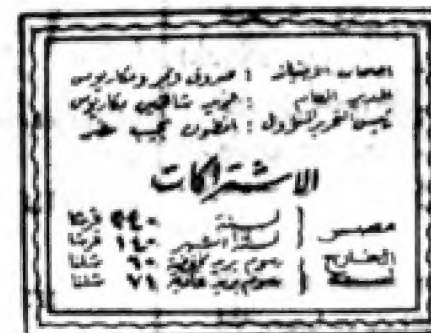 اصحاب الامتياز : صروف ونمر ومكاريوس
المدير العام :  شاهين مكاريوس
رئيس التحرير المسؤول : انطون نجيب مطر
الاشتراكات
مصر لسنة ٢٤٠ قرشا
لستة اشهر ١٤٠ قرشا
الخارج رسوم بريد ٦٠ شلنا
لسنة رسوم بريد ٧٦ شلنا